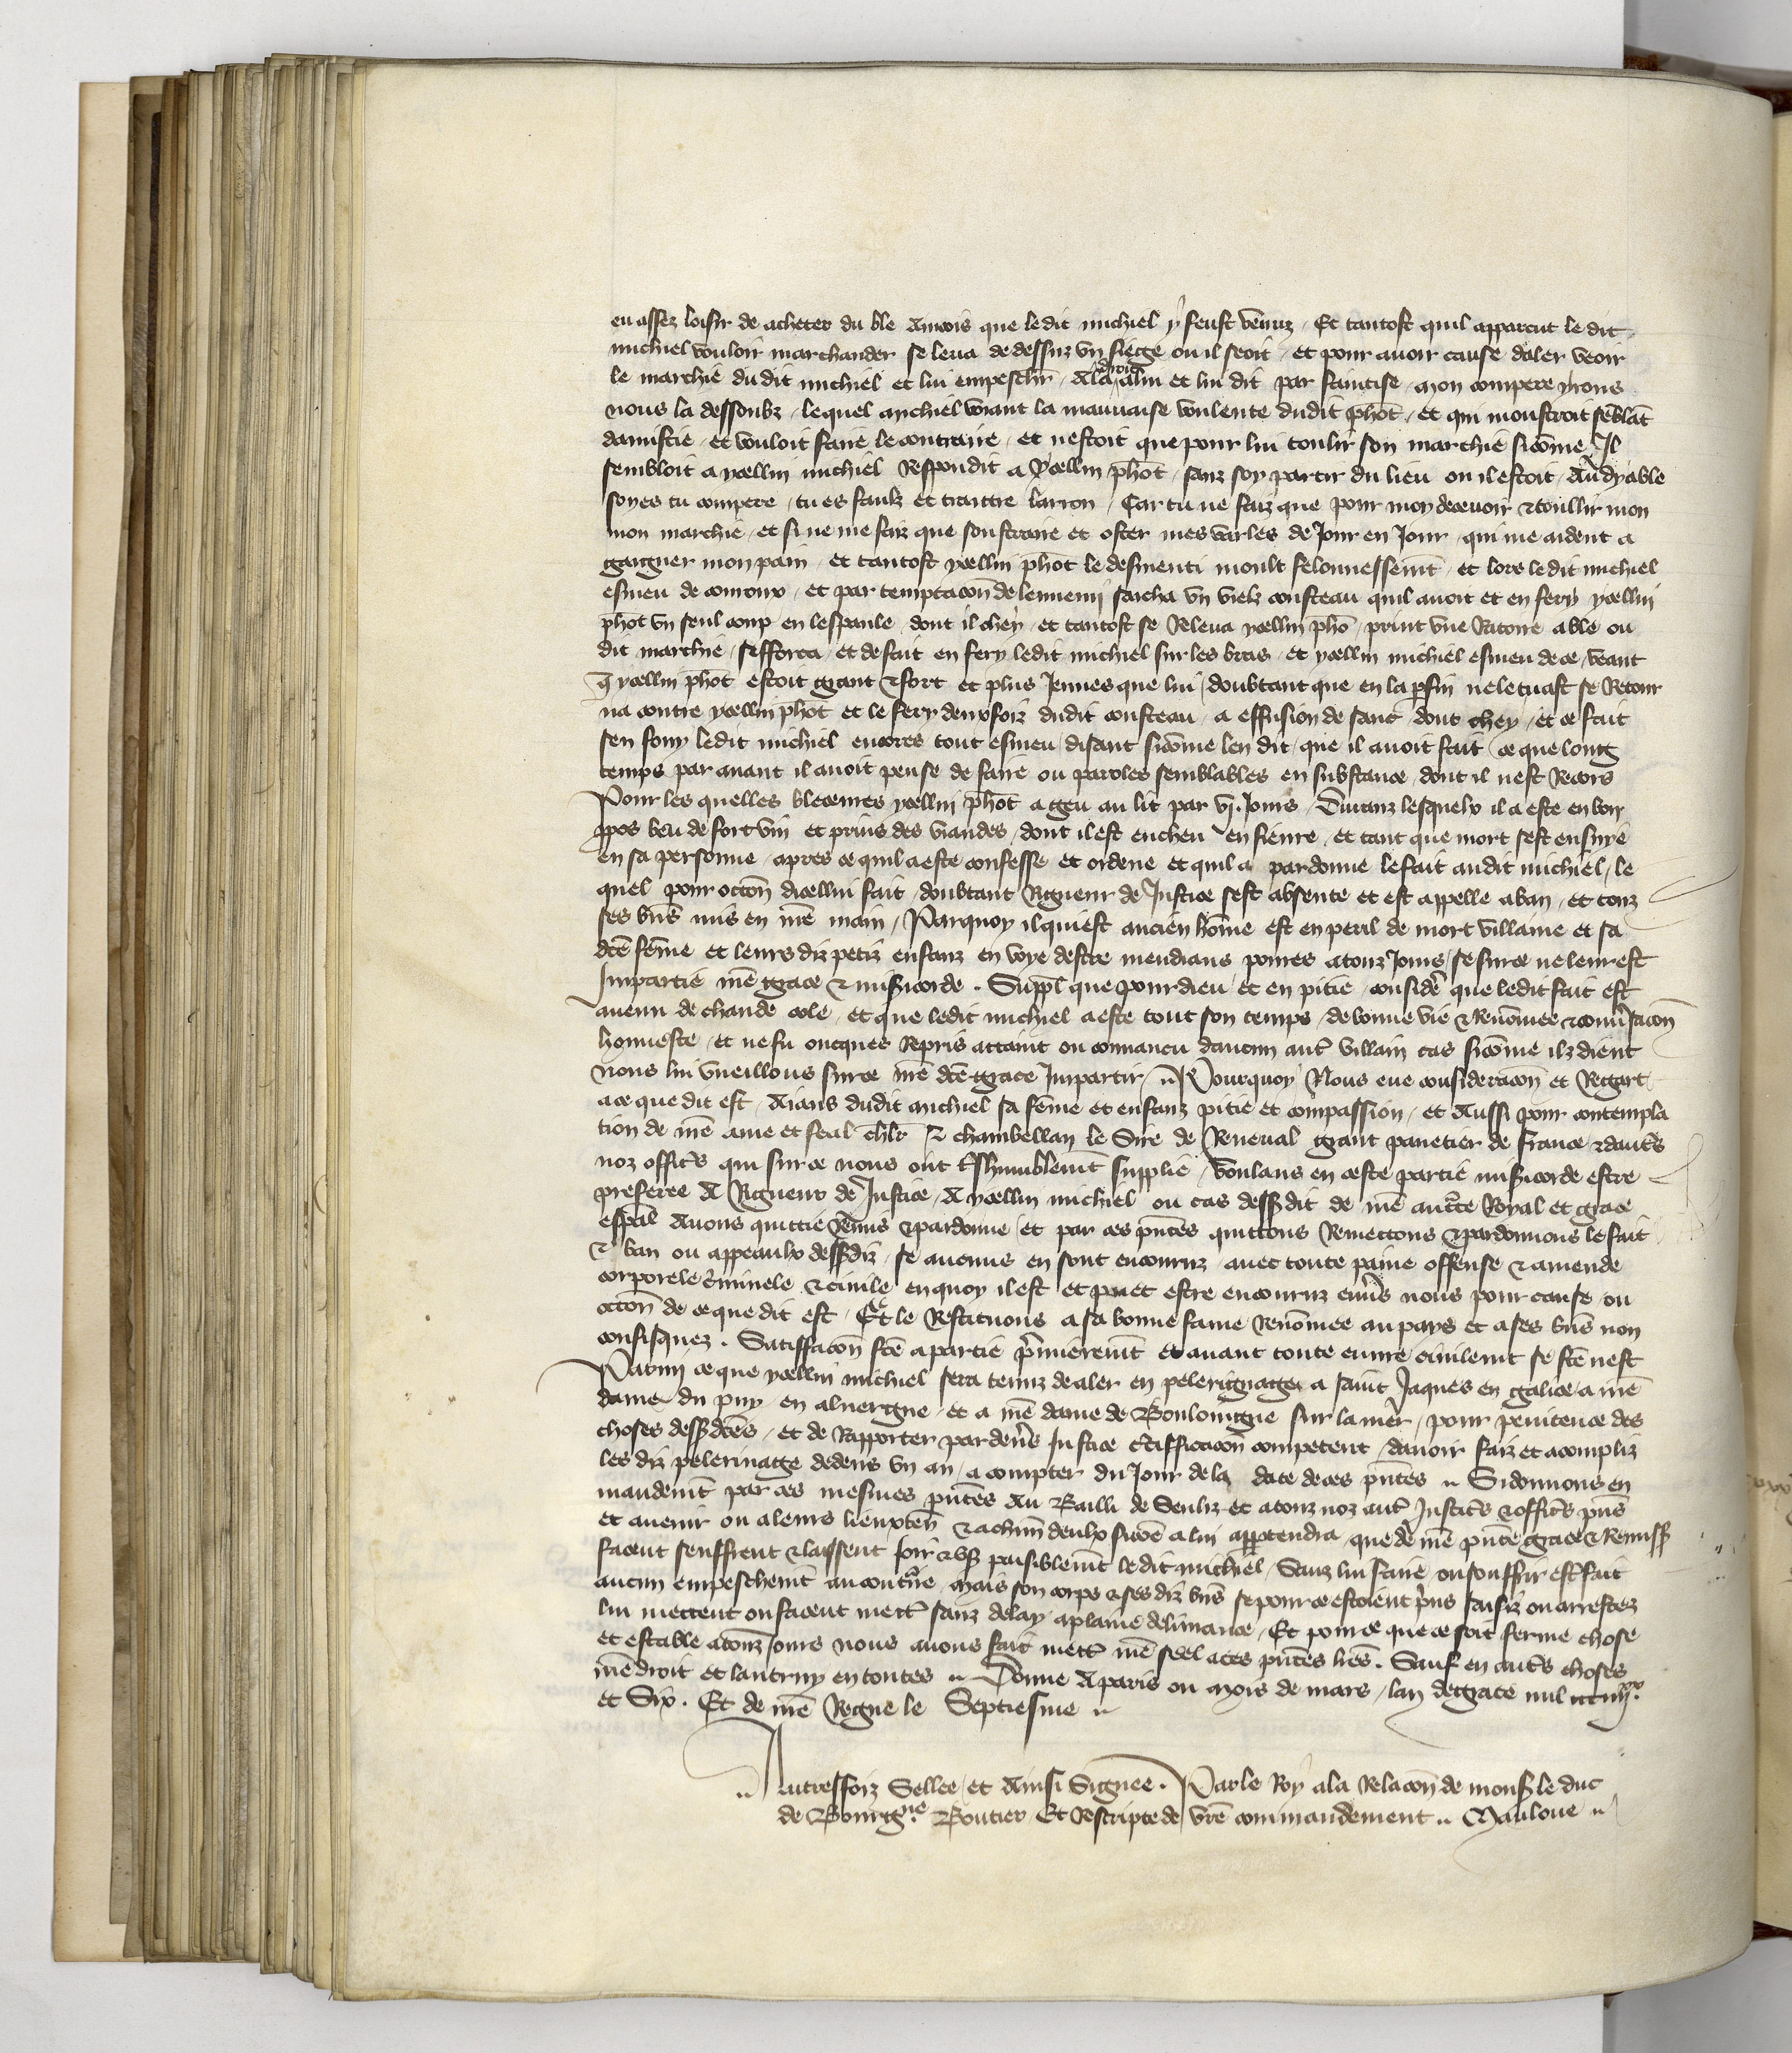 eu assez loisir de acheter du ble Aincois que le dit michiel y feust venuz / Et tantost quil apparcut le dit
michiel vouloir marchander se leva de dessuz vn siege ou il seoit / et pour auoir cause daler veoir
le marchie du dit michiel et lui empeschr / Ala droit a lui et lui dit par faintise / mon compere yrons
nous la dessoubz / lequel michiel voiant la mauuaise voulente dudit phot / et qui monstroit seblat
damistie / et vouloit faire le contraire / et nestoit que pour lui toulir son marchie sicome Il
sembloit a ycellui michiel Respondit a ycellui phot / sanz soy partir du lieu ou il estoit / Au dyable
soyes tu compere / tu es faulz et traittre larron / Car tu ne faiz que pour moy decevoir & toullir mon
mon marchie / et si ne me faiz que soustraire et oster mes varles de Jour en Jour / qui me aident a
gaigner mon pain / et tantost ycellui phot le desmenti moult felonnessemt / et lors le dit michiel
esmeu de couroux / et par temptacon de lennemj sacha vn vielz cousteau quil auoit et en fery ycellui
phot vn seul coup en lespaule / dont il chey / et tantost se Releua ycellui pho / print vne Ratoire a ble ou
dit marchie / sefforca / et de fait en fery ledit michiel sur les bras / et ycellui michiel esmeu de ce / veant
q ycellui phot estoit grant & fort et plus Jeunes que lui / doubtant que en la p fin ne le tuast se Retour
na contre ycellui phot et le fery deux foiz dudit cousteau / a effusion de sanc / dont chey / et ce fait
sen fouy ledit michiel encores tout esmeu / disant sicome len dit / que il auoit fait / ce que long
temps par auant il auoit pense de faire ou paroles semblables en substance / dont il nest Recors
Pour les quelles bleceures ycellui phot a geu au lit par vj. Jours / Duranz lesquelx il a este en bon
ppos beu de fort vin et prins des viandes / dont il est encheu en fieure / et tant que mort sest ensuye
en sa personne / apres ce quil a este confesse et ordene et quil a pardonne le fait audit michiel / le
quel pour occon dicellui fait / doubtant Rigueur de Justice sest absente et est appelle a ban / et touz
ses bns mis en nre main / Parquoy il qui est ancien home est en peril de mort villaine et sa
dce feme et leurs diz petiz enfanz en voye destre mendians poures a touz Jours / se sur ce ne leur est
Impartie nre grace & misicorde . Suppl que pour dieu et en pitie / consider que ledit fait est
auenu de chaude cole / et que ledit michiel a este tout son temps / de bonne vie & Renomee & conusacon
honneste / et ne fu oncques Repris attaint ou conuaincu daucun autr villain cas sicome ilz dient
nous lui vueillons sur ce nre dce grace Impartir / Pourquoy Nous eue consideracon et Regart
a ce que dit est / Aians dudit michiel sa feme et enfanz pitie et compassion / et Aussi pour contempla
tion de nre ame et feal chlr & chambellan le Sire de Reneual grant panetier de france & dautrs
noz officrs qui sur ce nous ont treshumblemt supplie / Voulans en ceste partie misicorde estre
preferee A Rigueur de Justice / A ycellui michiel ou cas dessdit de nre aucte Royal et grace
espal Auons quittie Remis & pardonne / et par ces pntes quittons Remettons & pardonnons le fait
& ban ou appeaulx dessdiz / se aucuns en sont encouruz / auec toute paine offense & amende
corporele criminele & ciuile en quoy il est et puet estre encouruz enuers nous pour cause / ou
occon de ce que dit est / Et le Restituons a sa bonne fame Renomee au pays et a ses bns non
confisquez . Satiffacon fce a partie primieremt et auant toute euure ciuilemt se fce nest
Parmi ce que ycellui michiel sera tenuz de aler en pelerignage a saint Jaques en galice / a nre
dame du puy en aluergne / et a nre dame de Boulongne sur la mer / pour penitence des
choses dessdces / et de Rapporter pardeuers Justice certifficacon competent / dauoir faiz et acompliz
les diz pelerinage dedens vn an / a compter du Jour de la date de ces pntes Si donnons en
mandemt par ces mesmes pntes Au Bailli de Senliz et a touz noz autr Justicrs & officrs pns
et auenir ou a leurs lieuxten & a chun deulx sicoe a lui appartendra / que de nre pnte grace & Remiss
facent seuffrent & laissent Joir & vs paisiblemt le dit michiel / Sanz lui faire ou souffrir estr fait
aucun empeschemt au contre / Mais son corps & ses diz bns se pour ce estoient prins saisiz ou arrestez
lui mettent ou facent mettr sanz delay a plaine deliurance / Et pour ce que ce soit ferme chose
et estable a touz Jours nous auons fait mettr nre seel a ces pntes lres . Sauf en autrs choses
nre droit et lautruy en toutes Donne A paris ou mois de mars / lan de grace mil ccc iiij xx
et Six . Et de nre Regne le Septiesme

Autreffoiz Sellee / et Ainsi Signee . Par le Roy a la Relacon de mons le duc
de Bourgne Boutier Et Rescripte de vre commandement Mauloue